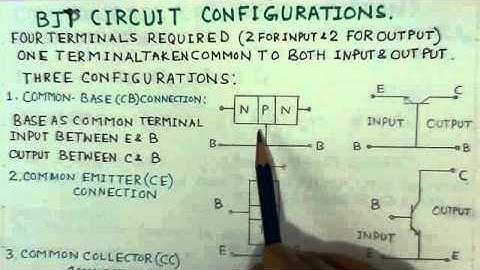 BJT CIRCUIT CONFIGURATIONS.
FOUR TERMINALS REQUIRED (2 FOR INPUT & 2 FOR OUTPUT)
ONE TERMINAL TAKEN COMMON TO BOTH INPUT & OUTPUT.
THREE CONFIGURATIONS:
1. COMMON-BASE (CB) CONNECTION:
BASE AS COMMON TERMINAL
INPUT BETWEEN E & B
OUTPUT BETWEEN C & B
N P N
B B
E C
INPUT OUTPUT
B B
2. COMMON EMITTER (CE)
CONNECTION
B
E
C
B OUTPUT
INPUT
E E
3. COMMON COLLECTOR (CC)